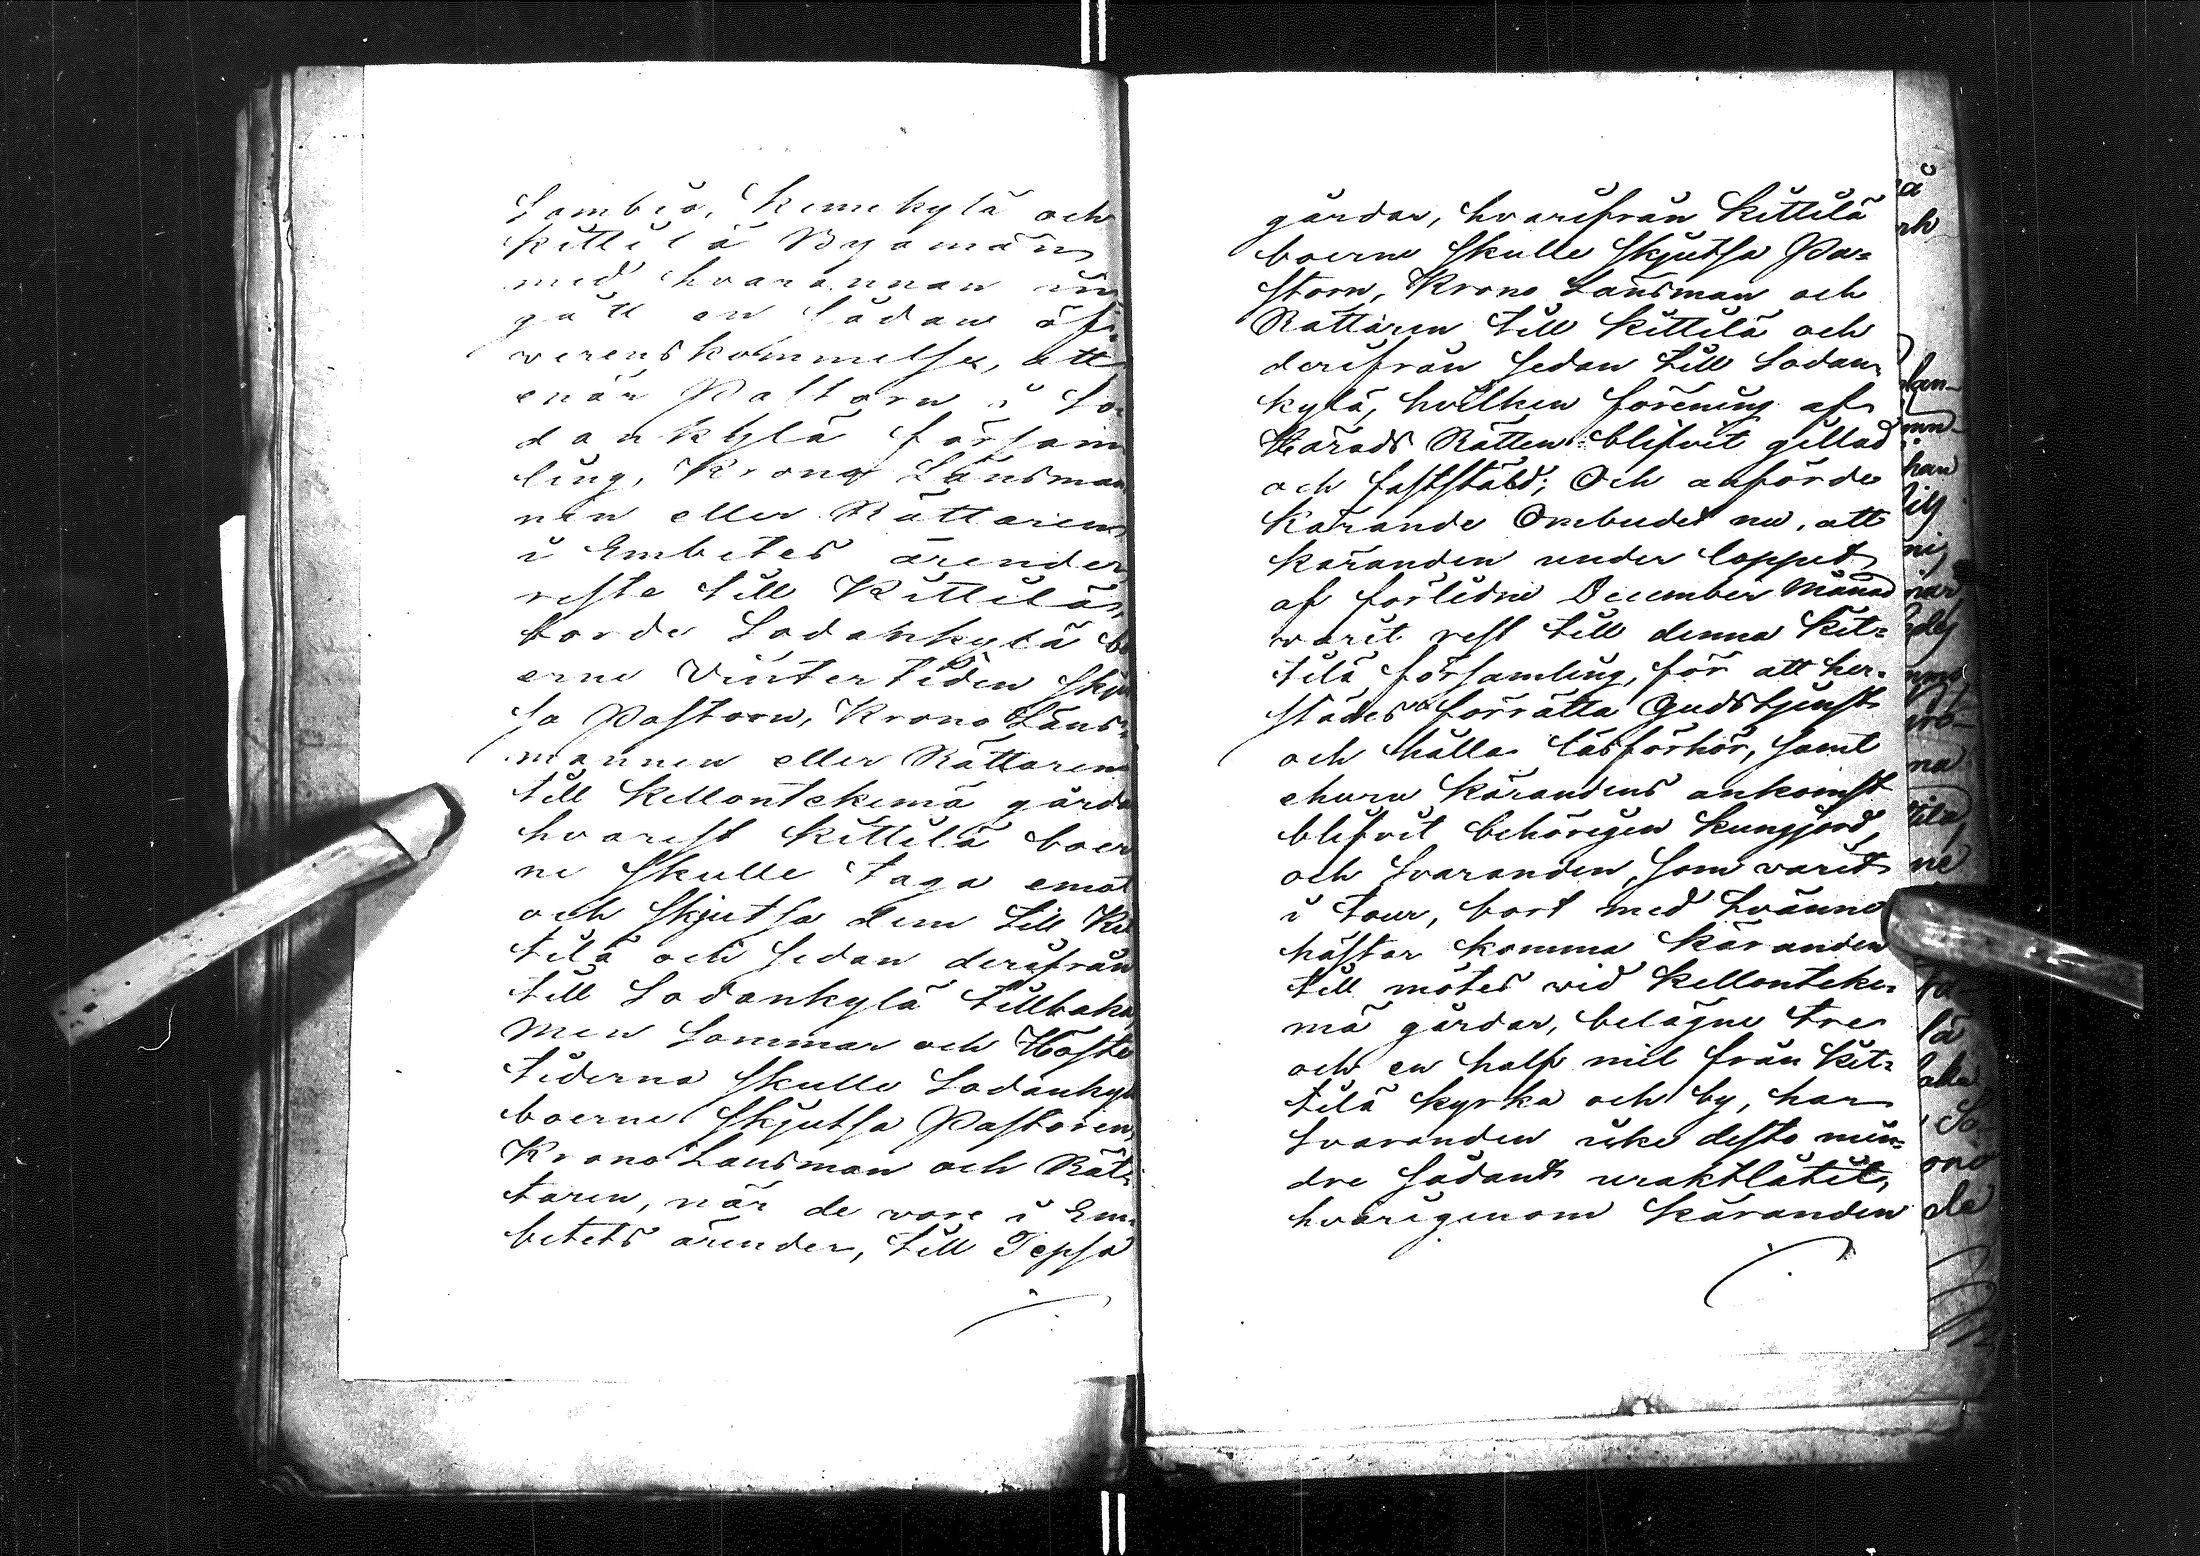 Sombiö, Kemikylä och
Kittilä Byamän
med hvarannan in
gått en sådan öf-
verenskommelse, att
enär Pastorn i So-
dankylä försam
ling, Krono Länsman
nen eller Rättaren
i Embetes ärender
reste till Kittilä,
borde Sodankylä bo
erne Vintertiden skju
sa Pastorn, Krono Läns-
mannen eller Rättaren
till Kellontekemä gårda
hvarest Kittilä boer
ne skulle taga emot
och skjutsa dem till Kit
tilä och sedan derifrån
till Sodankylä tillbaka
Men Sommar och Höste
tiderna skulle Sodanky
boerne skjutsa Pastoren
Krono Länsman och Rät-
taren, när de vore i Em-
betets ärender, till Tepsa
gårdar, hvarifrån Kittilä
boerne skulle skjutsa Pa-
storn, Krono Länsman och
Rättaren till Kittilä och
derifrån sedan till Sodan-
kylä, hvilken förening af
Härads Rätten blifvit gillad
och faststäld; Och anförde
Kärande Ombudet nu, att
käranden under loppet
af förlidne December Månad
varit rest till denna Kit-
tilä församling, för att her-
städes förrätta Gudstjenst
och hålla läsförhör, samt
ehuru Kärandens ankomst
blifvit behörigen kungjord,
och Svaranden, som varit
i tour, bort med tvänne
hästar komma Käranden
till mötes vid Kellonteke-
mä gårdar, belägne tre
och en half mil från Kit-
tilä kyrka och by, har
Svaranden icke desto min-
dre sådant uraktlåtit,
hvarigenom Käranden